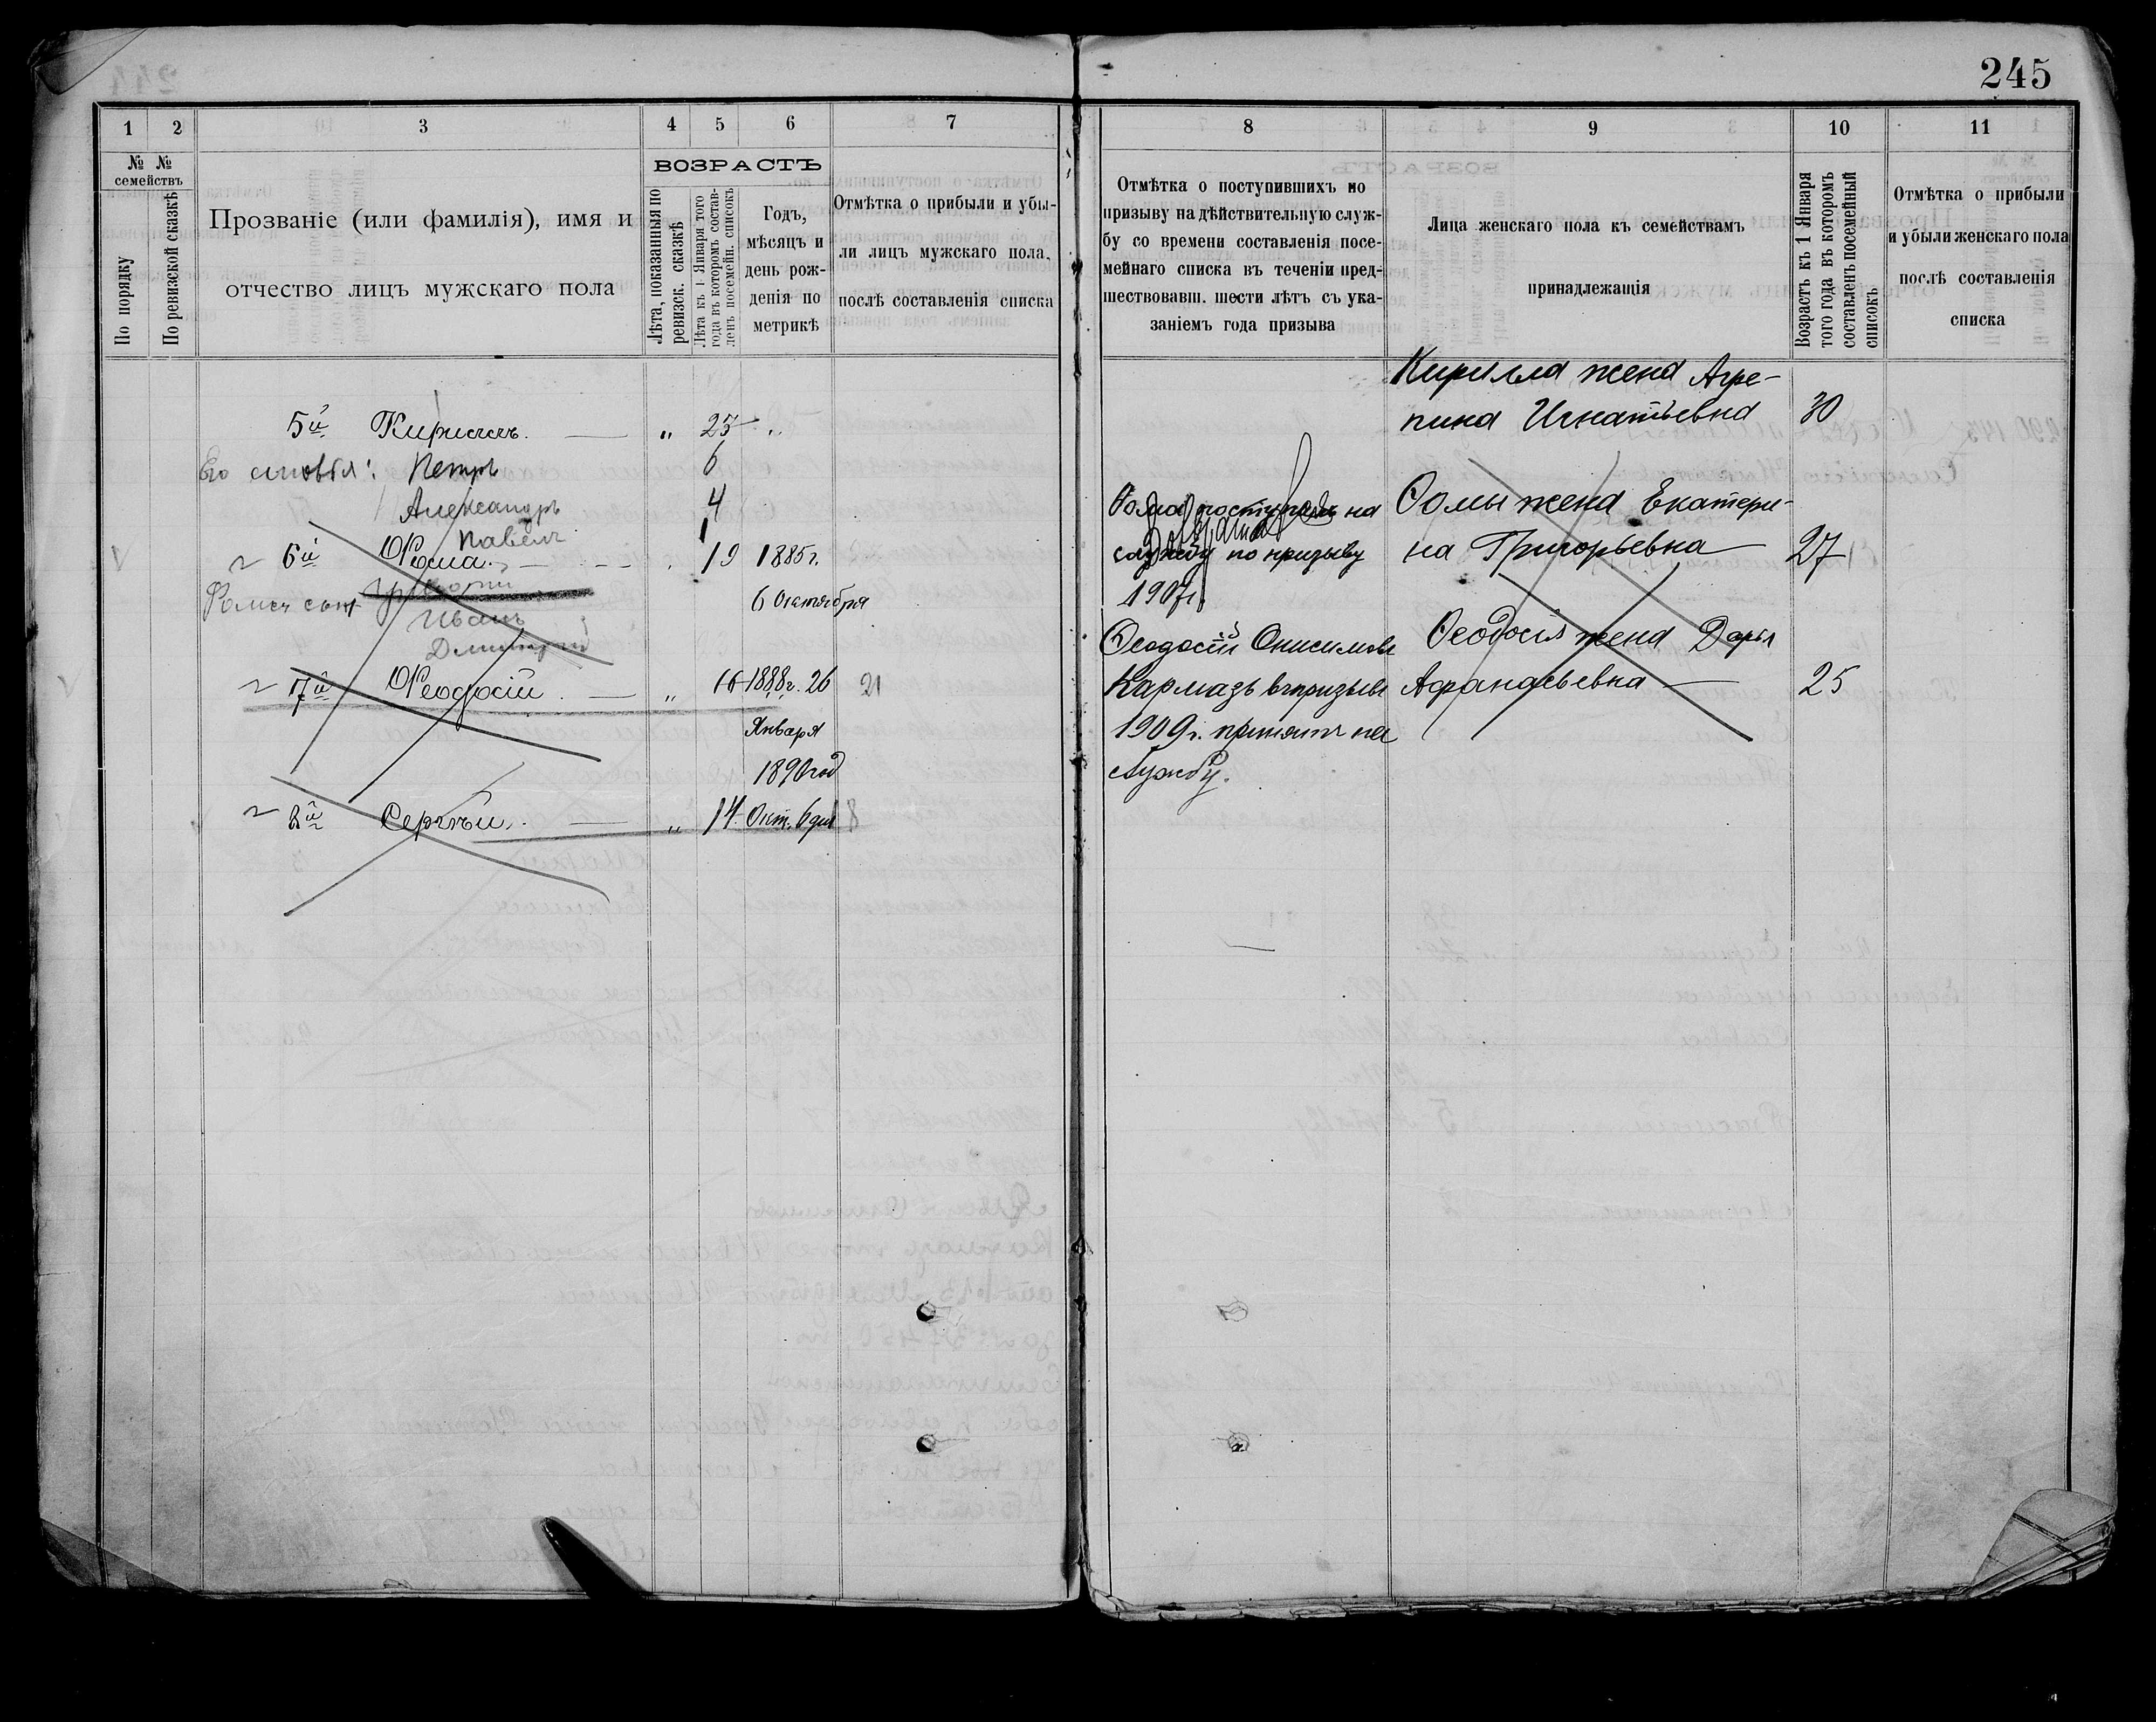 245
1 2 3 4 5 6 7
№ № семействъ
По порядку
По ревизской сказкѣ
Прозваніе (или фамилія), имя и
отчество лицъ мужскаго пола
ВОЗРАСТЪ
Лѣта, показанныя по
ревизск. сказкѣ
Лѣта къ 1 Января того
года въ которомъ состав-
ленъ посемейн. списокъ
Годъ,
мѣсяцъ и
день рож-
денія по
метрикѣ
Отмѣтка о прибыли и убы-
ли лицъ мужскаго пола,
послѣ составленія списка
5й Кириллъ. — „ 25 „
Его сыновья: Петръ 6
Александръ 4
Павелъ 1
6й Фома. — 19 1885 г.
6 Октября
Фомы сын
Иванъ
Дмитрій
7й Феодосій. — „ 16 1888 г. 26 21
Января
1890 год
8й Сергѣй. — „ 14. Окт. 6 дня 18
8 9 10 11
Отмѣтка о поступившихъ по
призыву на дѣйствительную служ-
бу со времени составленія посе-
мейнаго списка въ теченіи пред-
шествовавш. шести лѣтъ съ ука-
заніемъ года призыва
Лица женскаго пола къ семействамъ
принадлежащія
Возрастъ къ 1 Января
того года въ которомъ
составленъ посемейный
списокъ
Отмѣтка о прибыли
и убыли женскаго пола
послѣ составленія
списка
Кирилла жена Агре-
пина Игнатьевна 30
Фома поступилъ на
службу по призыву
1907 г.
Ѳомы жена Екатери-
на Григорьевна — 27
Ѳеодосій Онисимовъ
Кармазь въ призывъ
1909 г. принятъ на
службу.
Ѳеодосія жена Дарья
Афанасьевна — 25